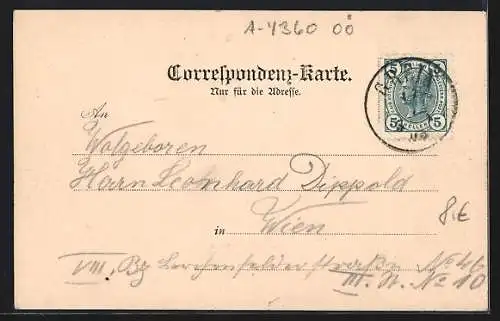 A-4360 OÖ
Correspondenz-Karte.
Nur für die Adresse.
5 5
An
Wolgeboren
Herrn Leonhard Dippold
in Wien
VIII. Bz Lerchenfelderstraße No 46
III. N. No 10
8.€